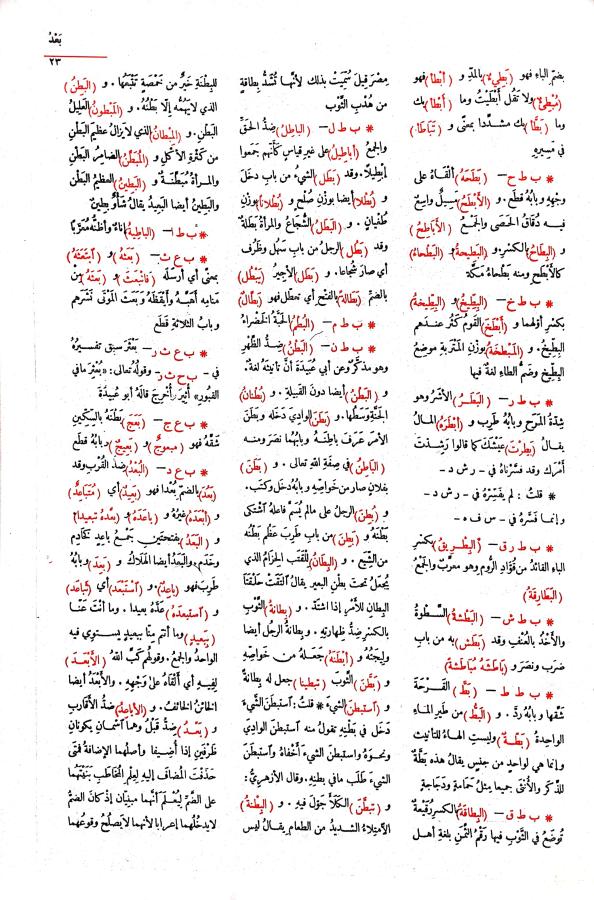 بَعْدُ
٢٣
بضم الباء فهو (بَطِيءٌ) بالمدّ و (أبْطَأَ) فهو
(مُبْطِئٌ) ولا تَقُل أَبْطَيْتُ وما (أَبْطَأَ) بِك
وما (بَطَّأَ) بِك مشدّدا بمعنًى و (تَبَاطَأَ)
في مَسِيرِهِ
* ب ط ح — (بَطَحَهُ) ألقَاهُ على
وجْهِهِ وبابُهُ قَطَع. و (الأَبْطَحُ) مَسِيلٌ واسِعٌ
فيـه دُقَاقُ الحَصَى والجَمْعُ (الأَبَاطِحُ)
و (البِطَاحُ) بالكَسْرِ. و (البَطِيحَةُ) و (البَطْحَاءُ)
كالأَبْطَحِ ومنه بَطْحَاءُ مَكَّةَ
* ب ط خ — (البِطِّيخُ) و (الطِّبِّيخَةُ)
بكسرِ أَوَّلِهما و (أَبْطَخَ) القَوْمُ كَثُرَ عندَهم
البِطِّيخُ. و (المَبْطَخَةُ) بوزن المَتْرَبَةِ موضِعُ
البِطِّيخ وضَمُّ الطاءِ لغةٌ فيها
* ب ط ر — (البَطَرُ) الأَشَرُ وهو
شِدَّةُ المَرَحِ وبابُهُ طَرِب و (أَبْطَرَهُ) المـالُ
يقـالُ (بَطِرْتَ) عِيشَتَكَ كما قالوا رَشِدْتَ
أَمْرَك وقد فسَّرْناهُ في - ر ش د -
* قلتُ: لم يفَسِّرْهُ في - ر ش د -
وإنما فسَّرَهُ في - س ف ه -
* ب ط ر ق — (البِطْرِيقُ) بكسْرِ
الباءِ القائدُ من قُوَّادِ الرُّومِ وهو مُعَرَّبٌ والجَمْعُ
(البَطَارِقَةُ)
* ب ط ش — (البَطْشَةُ) السَّطْوَةُ
والأَخْذُ بالعُنْفِ وقد (بَطَشَ) به من بابِ
ضرَب ونصَر و (بَاطَشَهُ مُبَاطَشَةً)
* ب ط ط — (بَطَّ) القَرْحَةَ
شَقَّها وبابُهُ رَدّ. و (البَطُّ) من طَيرِ المـاءِ
الواحِدَةُ (بَطَّةٌ) وليستِ الهاءُ للتأنيثِ
وإنما هي لواحِدٍ من جِنْسٍ يقالُ هذه بَطَّةٌ
للذَّكَرِ والأُنْثَى جميعا مِثْلُ حَمَامَةٍ ودَجَاجَةٍ
* ب ط ق — (البِطَاقَةُ) بالكسرِ رُقَيْعَةٌ
تُوضَعُ في الثَّوْبِ فيها رَقْمُ الثَّمَنِ بلغةِ أهـلِ
مِصْرَ قيل سُمِّيَتْ بذلك لأنها تُشَدُّ بِطَاقَةٍ
من هُدْبِ الثَّوْبِ
* ب ط ل — (البَاطِلُ) ضِدُّ الحَقِّ
والجمعُ (أباطِيلُ) على غيرِ قياسٍ كأنَّهم جَمَعوا
إبْطِيلاً. وقد (بَطَل) الشيءُ من بابِ دخَلَ
و (بُطْلا) أيضا بوَزْنِ صُلْحٍ و (بُطْلانا) بوزنِ
طُغْيان. و (البَطَلُ) الشُّجَاعُ والمرأةُ بَطَلَةٌ
وقد (بَطُل) الرجلُ من بابِ سَهُل وظَرُف
أي صارَ شُجَاعا. و (بَطَل) الأَجِيرُ (يَبْطُل)
بالضمّ (بَطَالَةً) بالفتحِ أي تعطَّل فهو (بَطَّالٌ)
* ب ط م — (البُطْمُ) الحَبَّةُ الخَضْرَاءُ
* ب ط ن — (البَطْنُ) ضِدُّ الظَّهْرِ
وهو مذكَّرٌ وعن أبي عُبَيْدَةَ أنَّ تأنيثَهُ لغةٌ.
و (البَطْنُ) أيضا دونَ القَبِيلَةِ. و (بُطْنانُ)
الجَنَّةِ وَسَطُها. و (بَطَنَ) الوادِيَ دَخَلَهُ وبَطَنَ
الأمْرَ عَرَف باطِنَـهُ وبابُهُما نصَر ومنـه
(البَاطِنُ) في صِفَةِ اللهِ تعالى. و (بَطَنَ)
بفلانٍ صارَ من خَوَاصِّهِ وبابُهُ دخَل وكتَب.
و (بُطِنَ) الرجلُ على مالم يُسَمَّ فاعِلُهُ اشْتَكَى
بَطْنَهُ و (بَطِنَ) من بابِ طَرِب عَظُم بَطْنُه
من الشِّبَع. و (البِطَانُ) للقَتَبِ الحِزَامُ الذي
يُجْعَلُ تحتَ بطنِ البعيرِ يقالُ الْتَقَتْ حَلْقَتَا
البِطَانِ للأَمْرِ إذا اشتَدَّ. و (بِطَانَةُ) الثَّوْبِ
بالكسرِ ضِدُّ ظِهَارَتِه. وبِطَانَةُ الرجُلِ أيضا
وَلِيجَتُهُ و (أَبْطَنَهُ) جَعَـلهُ من خَوَاصِّهِ
و (بَطَّنَ) الثَّوْبَ (تَبْطِينا) جعل له بِطَانةً
و (استَبْطَنَ) الشيءَ * قلتُ: استَبْطَنَ الشيءَ
دَخَل في بَطْنِهِ تقولُ منه استَبْطَنَ الوادِيَ
ونحوَهُ واستَبطَنَ الشيءَ أخْفَاهُ واستَبْطَنَ
الشيءَ طَلَب مافي بطنِه. وقال الأزهريُّ:
و (تَبَطَّنَ) الكَلَأَ جَوَّلَ فيه. و (البِطْنَةُ)
الامْتِلاءُ الشديدُ من الطعامِ يقالُ ليس
للبِطْنَةِ خَيْرٌ من خَمْصَةٍ تَتْبَعُها. و (البَطِنُ)
الذي لايَهُمُّه إلَّا بَطْنُهُ. و (المَبْطُونُ) العَلِيلُ
البَطْنِ. و (المِبْطَانُ) الذي لايزالُ عظيمَ البَطْنِ
من كَثْرَةِ الأَكْلِ و (المُبَطَّنُ) الضامِرُ البَطْنِ
والمـرأةُ مُبَطَّنَـةٌ. و (البَطِينُ) العظيمُ البَطْنِ
والبَطِينُ أيضا البَعِيدُ يقالُ شَأْوٌ بَطِينٌ
* ب ط ا — (البَاطِيَةُ) إناءٌ وأظنُّه مُعَرَّبًا
* ب ع ث — (بَعَثَهُ) و (ابتَعَثَهُ)
بمعنًى أي أرسلَهُ (فانبَعَثَ) و (بَعَثَهُ) مِنْ
مَنَامِه أهَبَّـهُ وأيْقَظَهُ وبَعَثَ المَوْتَى نَشَرَهم
وبابُ الثلاثَةِ قطَع
* ب ع ث ر — بَعْثَر سبق تفسيرُهُ
في - ب ح ث ر - وقولُهُ تعالى: «بُعْثِرَ ما في
القبورِ» أُثِيرَ وأُخْرِجَ قالَهُ أبو عُبَيْدَةَ
* ب ع ج — (بَعَجَ) بَطْنَهُ بالسِّكِّينِ
شَقَّهُ فهو (مَبْعُوجٌ) و (بَعِيجٌ) وبابُهُ قَطَع
* ب ع د — (البُعْدُ) ضدّ القُرْبِ وقد
(بَعُدَ) بالضمّ بُعْدًا فهو (بَعِيدٌ) أي (مُتَبَاعِدٌ)
و (أبْعَدَهُ) غيرُهُ و (باعَدَهُ) و (بَعَّدَهُ تبعيدا)
و (البَعَدُ) بفتحتينِ جَمْعُ باعِدٍ كخادِمٍ
وخَدَمٍ. والبَعَدُ أيضا الهَلَاكُ و (بَعِدَ) وبابُهُ
طَرِبَ فهو (باعِدٌ). و (استَبْعَدَ) أي (تباعَد)
و (استَبعدَهُ) عَدَّه بعيدا. وما أنتَ عَنَّا
(ببعيدٍ) وما أنتم مِنَّا ببعيدٍ يستوِي فيه
الواحدُ والجمعُ. وقولُهم كَبَّ اللهُ (الأَبْعَـدَ)
لِفِيهِ أي ألْقَاهُ على وَجْهِهِ. والأَبْعَدُ أيضا
الخائنُ الخائفُ. و (الأباعِدُ) ضدُّ الأقَارِبِ
و (بَعْـدُ) ضِدُّ قَبْلُ وهما اسمانِ يكونانِ
ظَرْفَينِ إذا أُضِيفا وأصلُهما الإضافةُ فمتَى
حَذَفْتَ المُضافَ إليهِ لِعِلْمِ المُخَاطَبِ بَنَيْتَهُما
على الضَّمِّ لِيُعْلَمَ أنهما مبنِيَّان إذ كانَ الضمُّ
لايدخُلُهما إعرابا لأنهما لايَصْلُحُ وقوعُهما